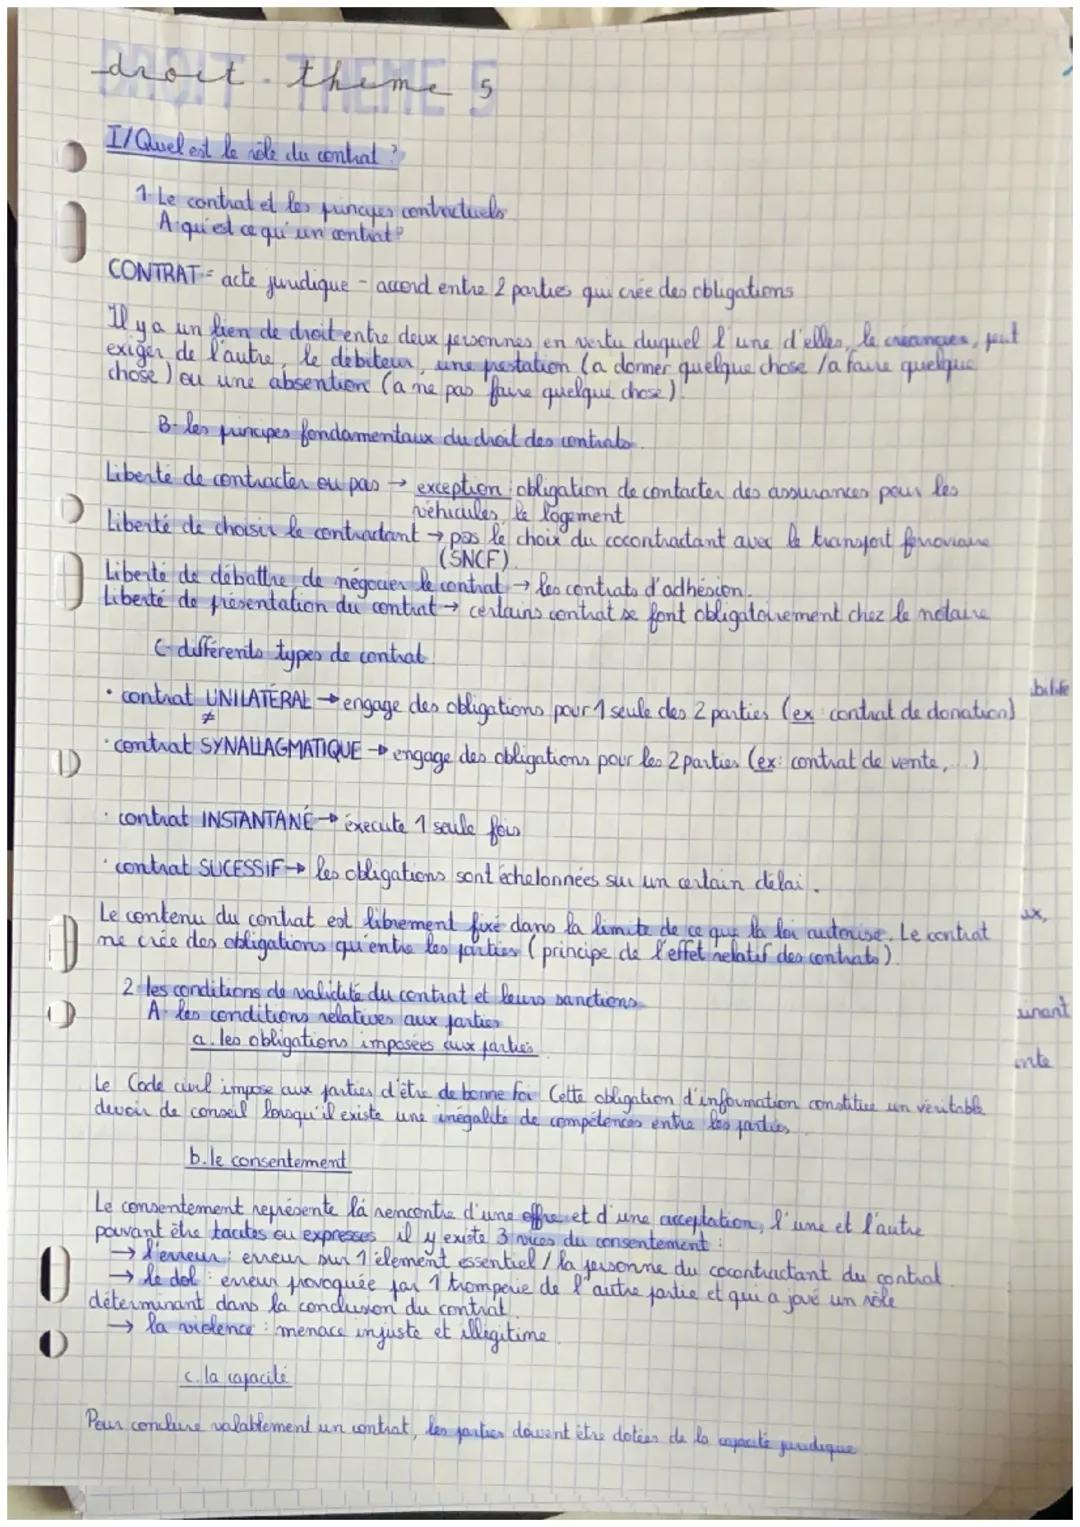 droit - thème 5
DROIT - THEME 5
I/ Quel est le rôle du contrat ?
1- Le contrat et les principes contractuels
A- qu'est ce qu'un contrat ?
CONTRAT = acte juridique - accord entre 2 parties qui crée des obligations
Il y a un lien de droit entre deux personnes en vertu duquel l'une d'elles, le créancier, peut
exiger de l'autre, le débiteur, une prestation (à donner quelque chose / à faire quelque
chose) ou une absention (à ne pas faire quelque chose).
B- les principes fondamentaux du droit des contrats.
Liberté de contracter ou pas → exception : obligation de contacter des assurances pour les
véhicules, le logement
Liberté de choisir le contractant → pas le choix du cocontractant avec le transport ferroviaire
(SNCF).
Liberté de débattre de négocier le contrat → les contrats d'adhésion.
Liberté de présentation du contrat → certains contrat se font obligatoirement chez le notaire
C- différents types de contrat
• contrat UNILATÉRAL → engage des obligations pour 1 seule des 2 parties (ex : contrat de donation)
≠
• contrat SYNALLAGMATIQUE → engage des obligations pour les 2 parties (ex : contrat de vente, ...)
• contrat INSTANTANÉ → éxecute 1 seule fois
• contrat SUCESSIF → les obligations sont échelonnées sur un certain délai.
Le contenu du contrat est librement fixé dans la limite de ce que la loi autorise. Le contrat
ne crée des obligations qu'entre les parties (principe de l'effet relatif des contrats).
2- les conditions de validité du contrat et leurs sanctions
A- les conditions relatives aux parties
a. les obligations imposées aux parties
Le Code civil impose aux parties d'être de bonne foi. Cette obligation d'information constitue un véritable
devoir de conseil lorsqu'il existe une inégalité de compétences entre les parties.
b. le consentement
Le consentement représente la rencontre d'une offre et d'une acceptation, l'une et l'autre
pouvant être tacites ou expresses. il y existe 3 vices du consentement :
→ l'erreur : erreur sur 1 élement essentiel / la personne du cocontractant du contrat.
→ le dol : erreur provoquée par 1 tromperie de l'autre partie et qui a joué un rôle
déterminant dans la conclusion du contrat.
→ la violence : menace injuste et illégitime.
c. la capacité
Pour conclure valablement un contrat, les parties doivent être dotées de la capacité juridique.